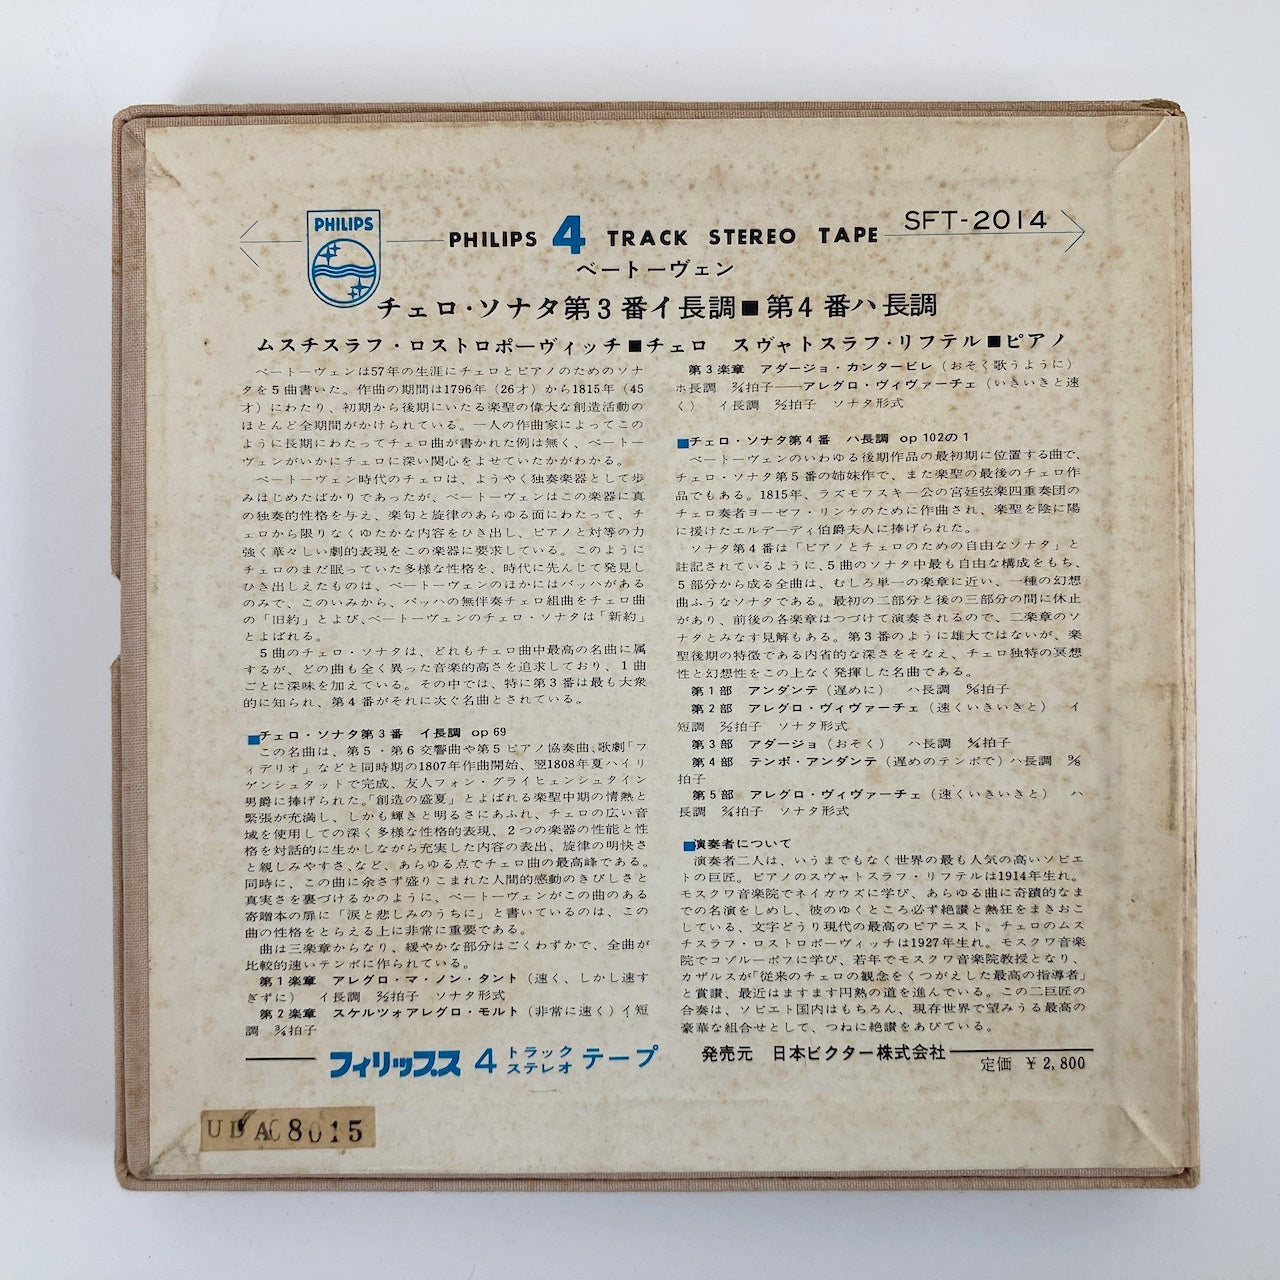 PHILIPS
PHILIPS 4 TRACK STEREO TAPE SFT-2014
ベートーヴェン
チェロ・ソナタ第3番イ長調■第4番ハ長調
ムスチスラフ・ロストロポーヴィッチ■チェロ スヴャトスラフ・リフテル■ピアノ
ベートーヴェンは57年の生涯にチェロとピアノのためのソナ
タを5曲書いた。作曲の期間は1796年（26才）から1815年（45
才）にわたり、初期から後期にいたる楽聖の偉大な創造活動の
ほとんど全期間がかけられている。一人の作曲家によってこの
ように長期にわたってチェロ曲が書かれた例は無く、ベートー
ヴェンがいかにチェロに深い関心をよせていたかがわかる。
ベートーヴェン時代のチェロは、ようやく独奏楽器として歩
みはじめたばかりであったが、ベートーヴェンはこの楽器に真
の独奏的性格を与え、楽句と旋律のあらゆる面にわたって、チ
ェロから限りなくゆたかな内容をひき出し、ピアノと対等の力
強く華々しい劇的表現をこの楽器に要求している。このように
チェロのまだ眠っていた多様な性格を、時代に先んじて発見し
ひき出しえたものは、ベートーヴェンのほかにはバッハがある
のみで、このいみから、バッハの無伴奏チェロ組曲をチェロ曲
の「旧約」とよび、ベートーヴェンのチェロ・ソナタは「新約」
とよばれる。
5曲のチェロ・ソナタは、どれもチェロ曲中最高の名曲に属
するが、どの曲も全く異った音楽的高さを追求しており、1曲
ごとに深味を加えている。その中では、特に第3番は最も大衆
的に知られ、第4番がそれに次ぐ名曲とされている。
■チェロ・ソナタ第3番 イ長調 op 69
この名曲は、第5・第6交響曲や第5ピアノ協奏曲、歌劇「フ
ィデリオ」などと同時期の1807年作曲開始、翌1808年夏ハイリ
ゲンシュタットで完成、友人フォン・グライヒェンシュタイン
男爵に捧げられた。「創造の盛夏」とよばれる楽聖中期の情熱と
緊張が充満し、しかも輝きと明るさにあふれ、チェロの広い音
域を使用しての深く多様な性格的表現、2つの楽器の性能と性
格を対話的に生かしながら充実した内容の表出、旋律の明快さ
と親しみやすさ、など、あらゆる点でチェロ曲の最高峰である。
同時に、この曲に余さず盛りこまれた人間的感動のきびしさと
真実さを裏づけるかのように、ベートーヴェンがこの曲のある
寄贈本の扉に「涙と悲しみのうちに」と書いているのは、この
曲の性格をとらえる上に非常に重要である。
曲は三楽章からなり、緩やかな部分はごくわずかで、全曲が
比較的速いテンポに作られている。
第1楽章 アレグロ・マ・ノン・タント（速く、しかし速す
ぎずに） イ長調 拍子 ソナタ形式
第2楽章 スケルツォアレグロ・モルト（非常に速く）イ短
調 ¾拍子
第3楽章 アダージョ・カンタービレ（おそく歌うように）
ホ長調 拍子――アレグロ・ヴィヴァーチェ（いきいきと速
く） イ長調 拍子 ソナタ形式
■チェロ・ソナタ第4番 ハ長調 op 102の1
ベートーヴェンのいわゆる後期作品の最初期に位置する曲で、
チェロ・ソナタ第5番の姉妹作で、また楽聖の最後のチェロ作
品でもある。1815年、ラズモフスキー公の宮廷弦楽四重奏団の
チェロ奏者ヨーゼフ・リンケのために作曲され、楽聖を陰に陽
に援けたエルデーディ伯爵夫人に捧げられた。
ソナタ第4番は「ピアノとチェロのための自由なソナタ」と
註記されているように、5曲のソナタ中最も自由な構成をもち、
5部分から成る全曲は、むしろ単一の楽章に近い、一種の幻想
曲ふうなソナタである。最初の二部分と後の三部分の間に休止
があり、前後の各楽章はつづけて演奏されるので、二楽章のソ
ナタとみなす見解もある。第3番のように雄大ではないが、楽
聖後期の特徴である内省的な深さをそなえ、チェロ独特の冥想
性と幻想性をこの上なく発揮した名曲である。
第1部 アンダンテ（遅めに） ハ長調 拍子
第2部 アレグロ・ヴィヴァーチェ（速くいきいきと） イ
短調 拍子 ソナタ形式
第3部 アダージョ（おそく） ハ長調 拍子
第4部 テンポ・アンダンテ（遅めのテンポで）ハ長調
拍子
第5部 アレグロ・ヴィヴァーチェ（速くいきいきと） ハ
長調 拍子 ソナタ形式
■演奏者について
演奏者二人は、いうまでもなく世界の最も人気の高いソビエ
トの巨匠。ピアノのスヴャトスラフ・リフテルは1914年生れ。
モスクワ音楽院でネイガウズに学び、あらゆる曲に奇蹟的なま
での名演をしめし、彼のゆくところ必ず絶讃と熱狂をまきおこ
している、文字どうり現代の最高のピアニスト。チェロのムス
チスラフ・ロストロポーヴィッチは1927年生れ。モスクワ音楽
院でコゾルーポフに学び、若年でモスクワ音楽院教授となり、
カザルスが「従来のチェロの観念をくつがえした最高の指導者」
と賞讃、最近はますます円熟の道を進んでいる。この二巨匠の
合奏は、ソビエト国内はもちろん、現存世界で望みうる最高の
豪華な組合せとして、つねに絶讃をあびている。
フィリップス 4 トラックステレオ テープ
発売元 日本ビクター株式会社
定価 ￥2,800
8015